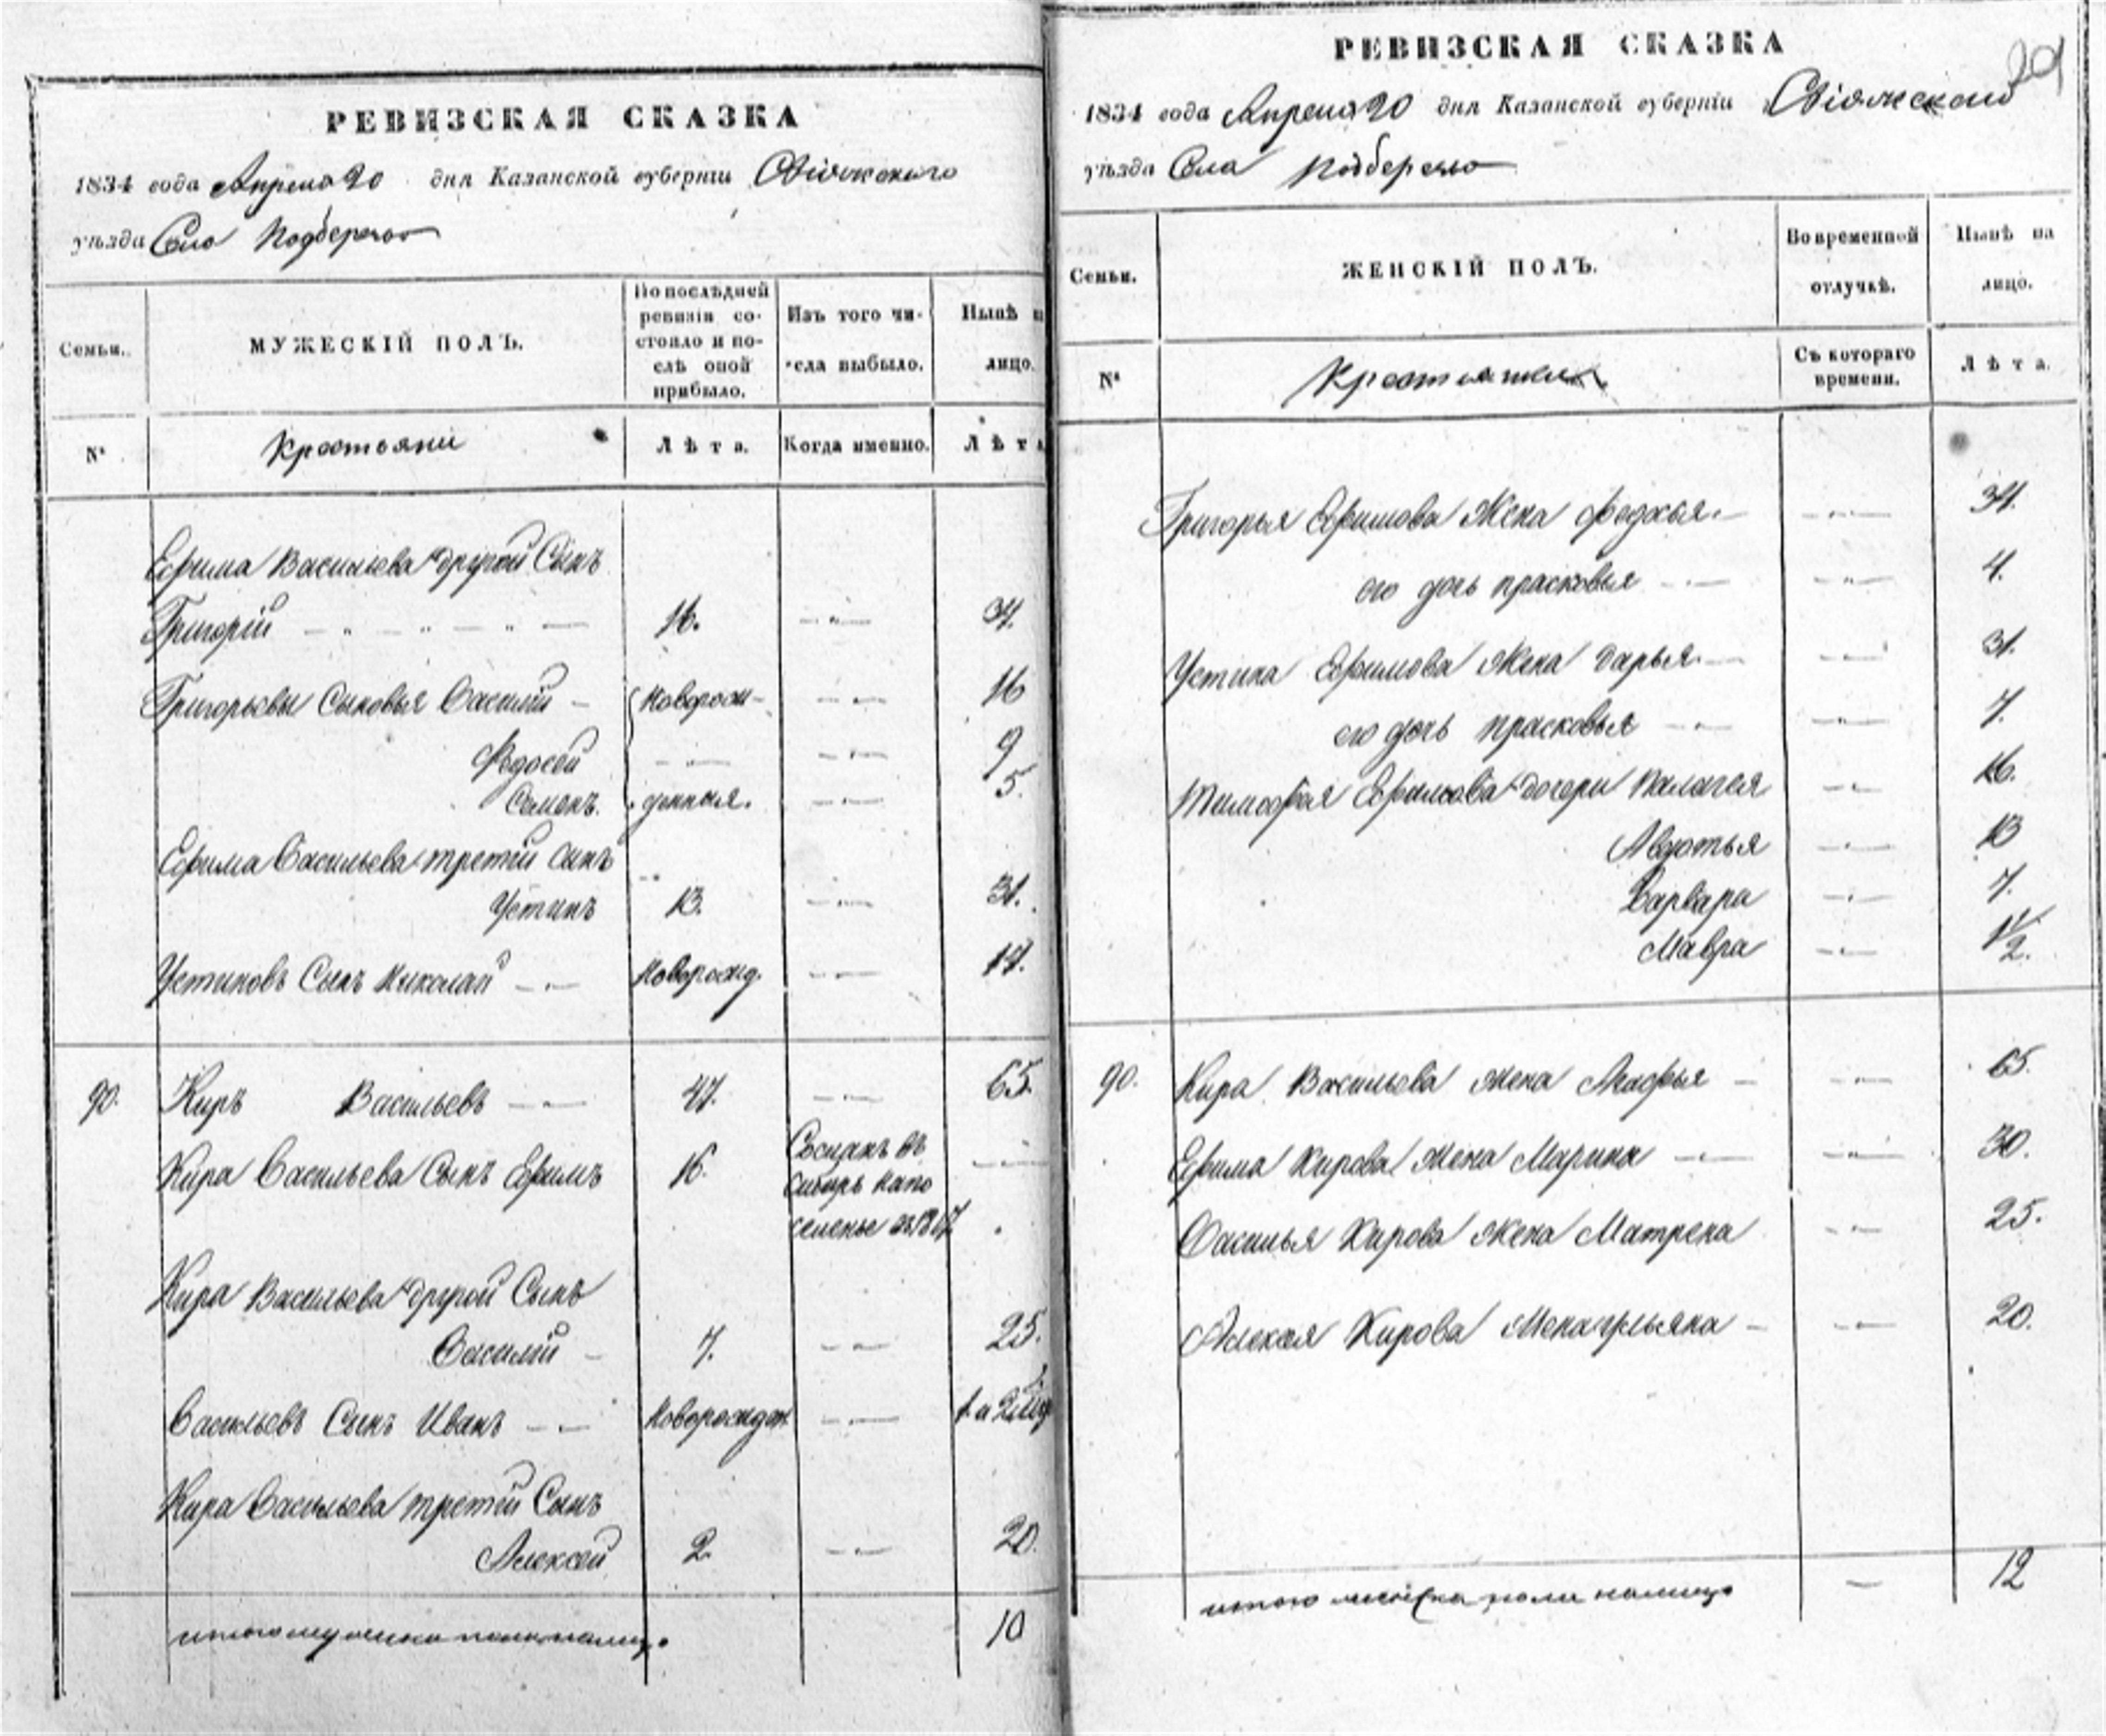 РЕВИЗСКАЯ СКАЗКА
1834 года Апреля 20 дня Казанской губерніи Свіяжскаго
уѣзда Село Подберезье
Семьи.
МУЖЕСКІЙ ПОЛЪ.
По послѣдней
ревизіи со-
стояло и по-
слѣ оной
прибыло.
Изъ того чи-
сла выбыло.
Нынѣ н
лицо.
№
Крестьяни
Лѣта.
Когда именно.
Лѣта
Ефима Васильева другой Сынъ
Григорій 16. 34.
Григорьевы Сыновья Василій Новорож- 16
Федосей 9
Семенъ. денныя. 5.
Ефима Васильева третій сынъ
Устинъ 13. 31.
Устиновъ Сынъ Николай Новорожд. 14.
90. Киръ Васильевъ 47. 65.
Кира Васильева Сынъ Ефимъ 16. Сосланъ въ
Сибирь на по
селенье въ 1817
Кира Васильева другой Сынъ
Василій 7. 25.
Васильевъ Сынъ Иванъ Новорожден.
Кира Васильева третій Сынъ
Алексей 2. 20.
итого мужеска пола налицо 10
29
РЕВИЗСКАЯ СКАЗКА
1834 года Апреля 20 дня Казанской губерніи Свіяжскаго
уѣзда Села Подберезье
Семьи.
ЖЕНСКІЙ ПОЛЪ.
Во временной
отлучкѣ.
Нынѣ на
лицо.
№
Крестьянки
Съ котораго
времени.
Лѣта.
Григорья Ефимова Жена Федосья 34.
его дочь прасковья 4.
Устина Ефимова Жена Дарья 31.
его дочь прасковья 7.
Тимофея Ефимова дочери Палагея 16.
Авдотья 13
Варвара 7.
Мавра 1/2.
90. Кира Васильева жена Агафья 65.
Ефима Кирова Жена Марина 30.
Василья Кирова Жена Матрена 25.
Алексея Кирова Жена ульяна 20.
итого женска пола налицо 12